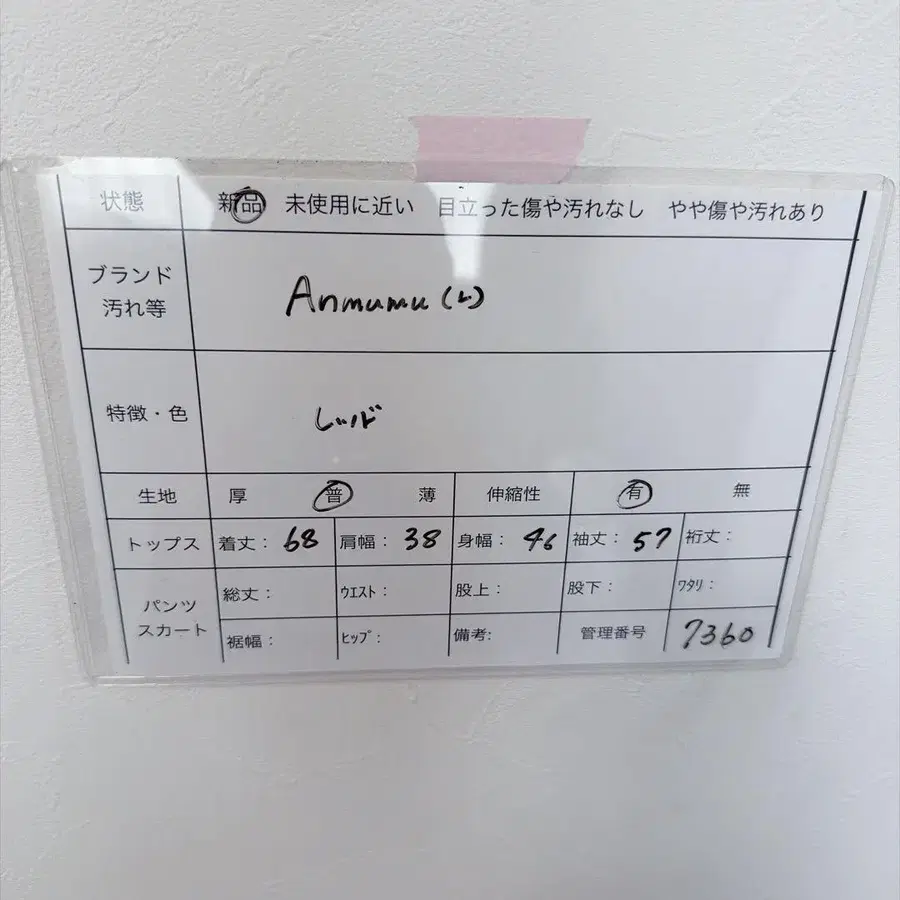 状態 新品 未使用に近い 目立った傷や汚れなし やや傷や汚れあり
ブランド
汚れ等
Anmumu (L)
特徴・色 レッド
生地 厚 普 薄 伸縮性 有 無
トップス 着丈: 68 肩幅: 38 身幅: 46 袖丈: 57 裄丈:
パンツ
スカート
総丈: ウエスト: 股上: 股下: ワタリ:
裾幅: ヒップ: 備考: 管理番号 7360